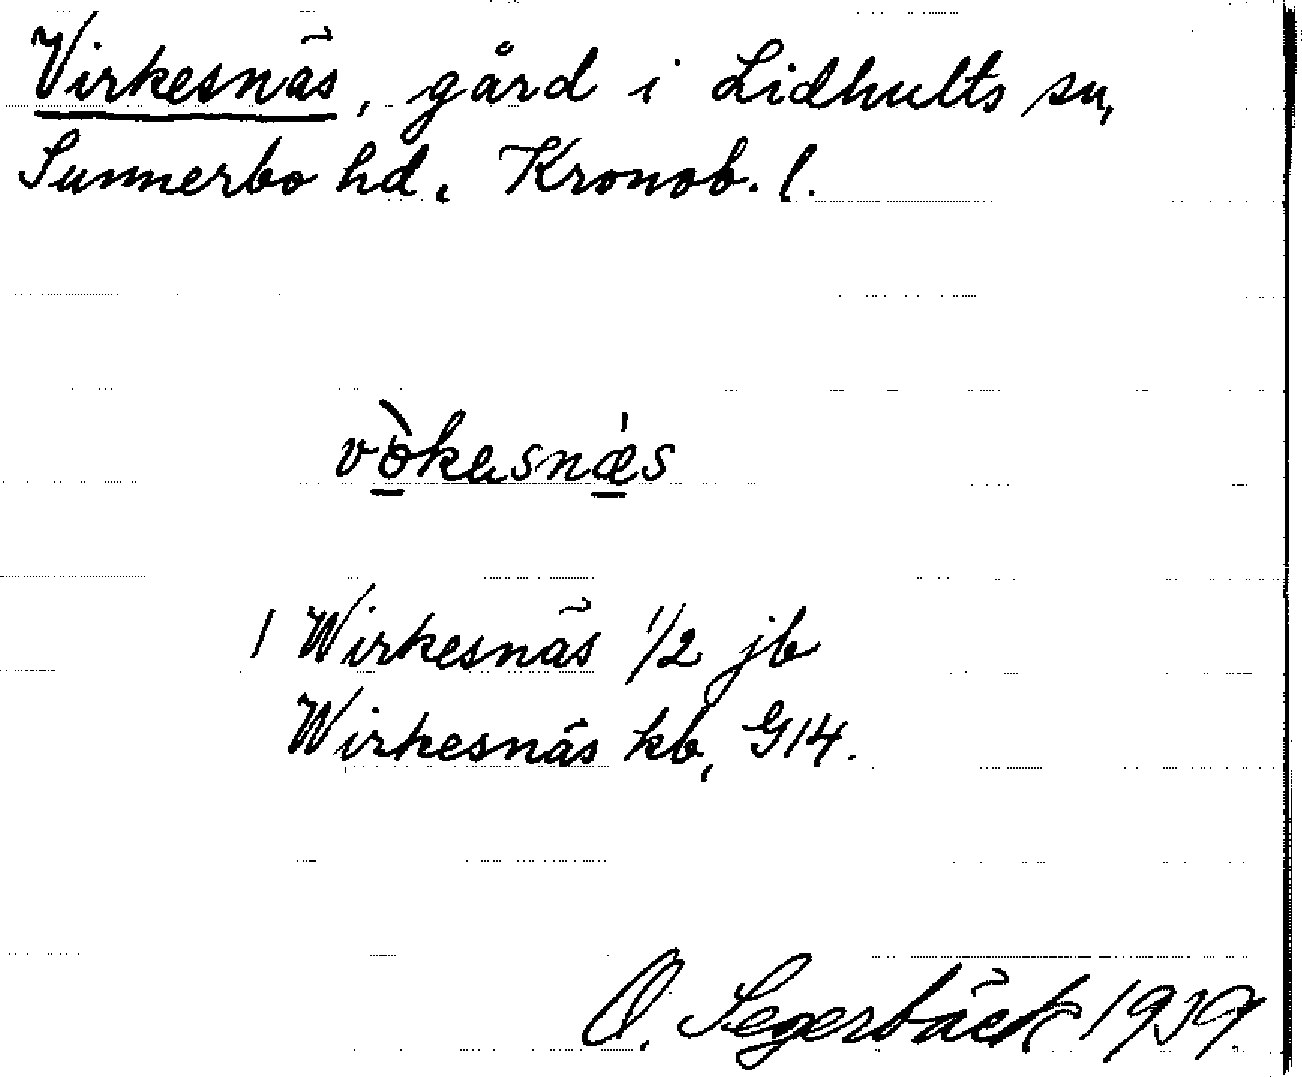 Virkesnäs, gård i Lidhults sn,
Sunnerbo hd, Kronob. l.
vò̱kesnǽ̱s
1 Wirkesnäs 1/2 jb
Wirkesnäs kb, G14.
O. Segerbäck 1939.